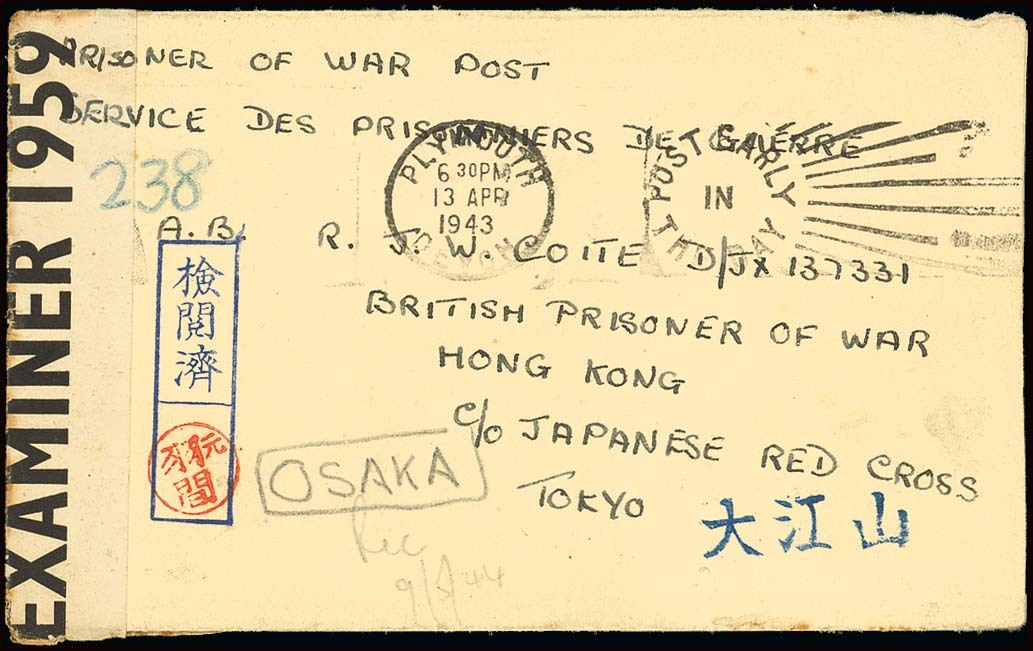 EXAMINER 1959
PRISONER OF WAR POST
SERVICE DES PRISONNIERS DE GUERRE
238
PLYMOUTH
6 30PM
13 APR
1943
DEVON
POST EARLY
IN
THE DAY
A.B. R. J. W. COITE D/JX 137331
BRITISH PRISONER OF WAR
HONG KONG
C/o JAPANESE RED CROSS
TOKYO
檢閲濟
OSAKA
大江山
Rec